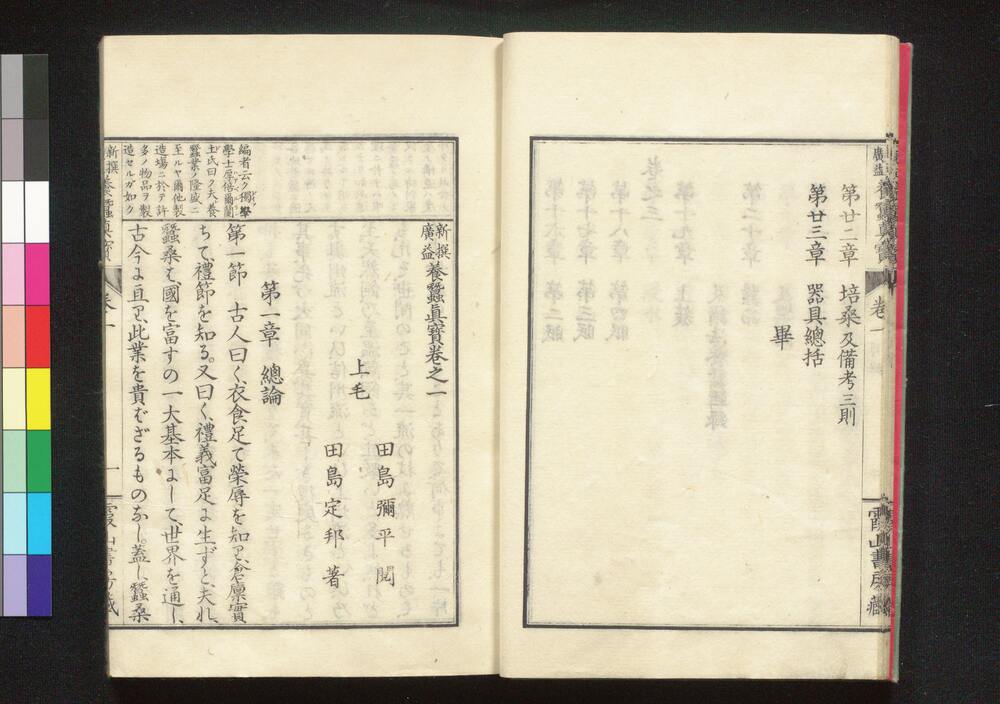 廣益 養蠶眞寶 卷一
霞山書房藏
第廿二章 培桑及備考三則
第廿三章 器具總括
畢
編者云ク獨學
學士厚倍爾蘭
土氏曰ク夫養
蠶業ノ隆盛ニ
至ルヤ爾他製
造塲ニ於テ許
多ノ物品ヲ製
造セルガ如ク
新撰 廣益 養蠶眞寶卷之一
上毛
田島彌平 閲
田島定邦 著
第一章 總論
第一節 古人曰く、衣食足て榮辱を知り、倉廩實
ちて、禮節を知る。又曰く、禮義富足に生ずと、夫れ、
蠶桑は、國を富すの一大基本にして、世界を通し、
古今に亘り、此業を貴ばざるものなし。蓋し、蠶桑
新撰養蠶眞寶 卷一 一